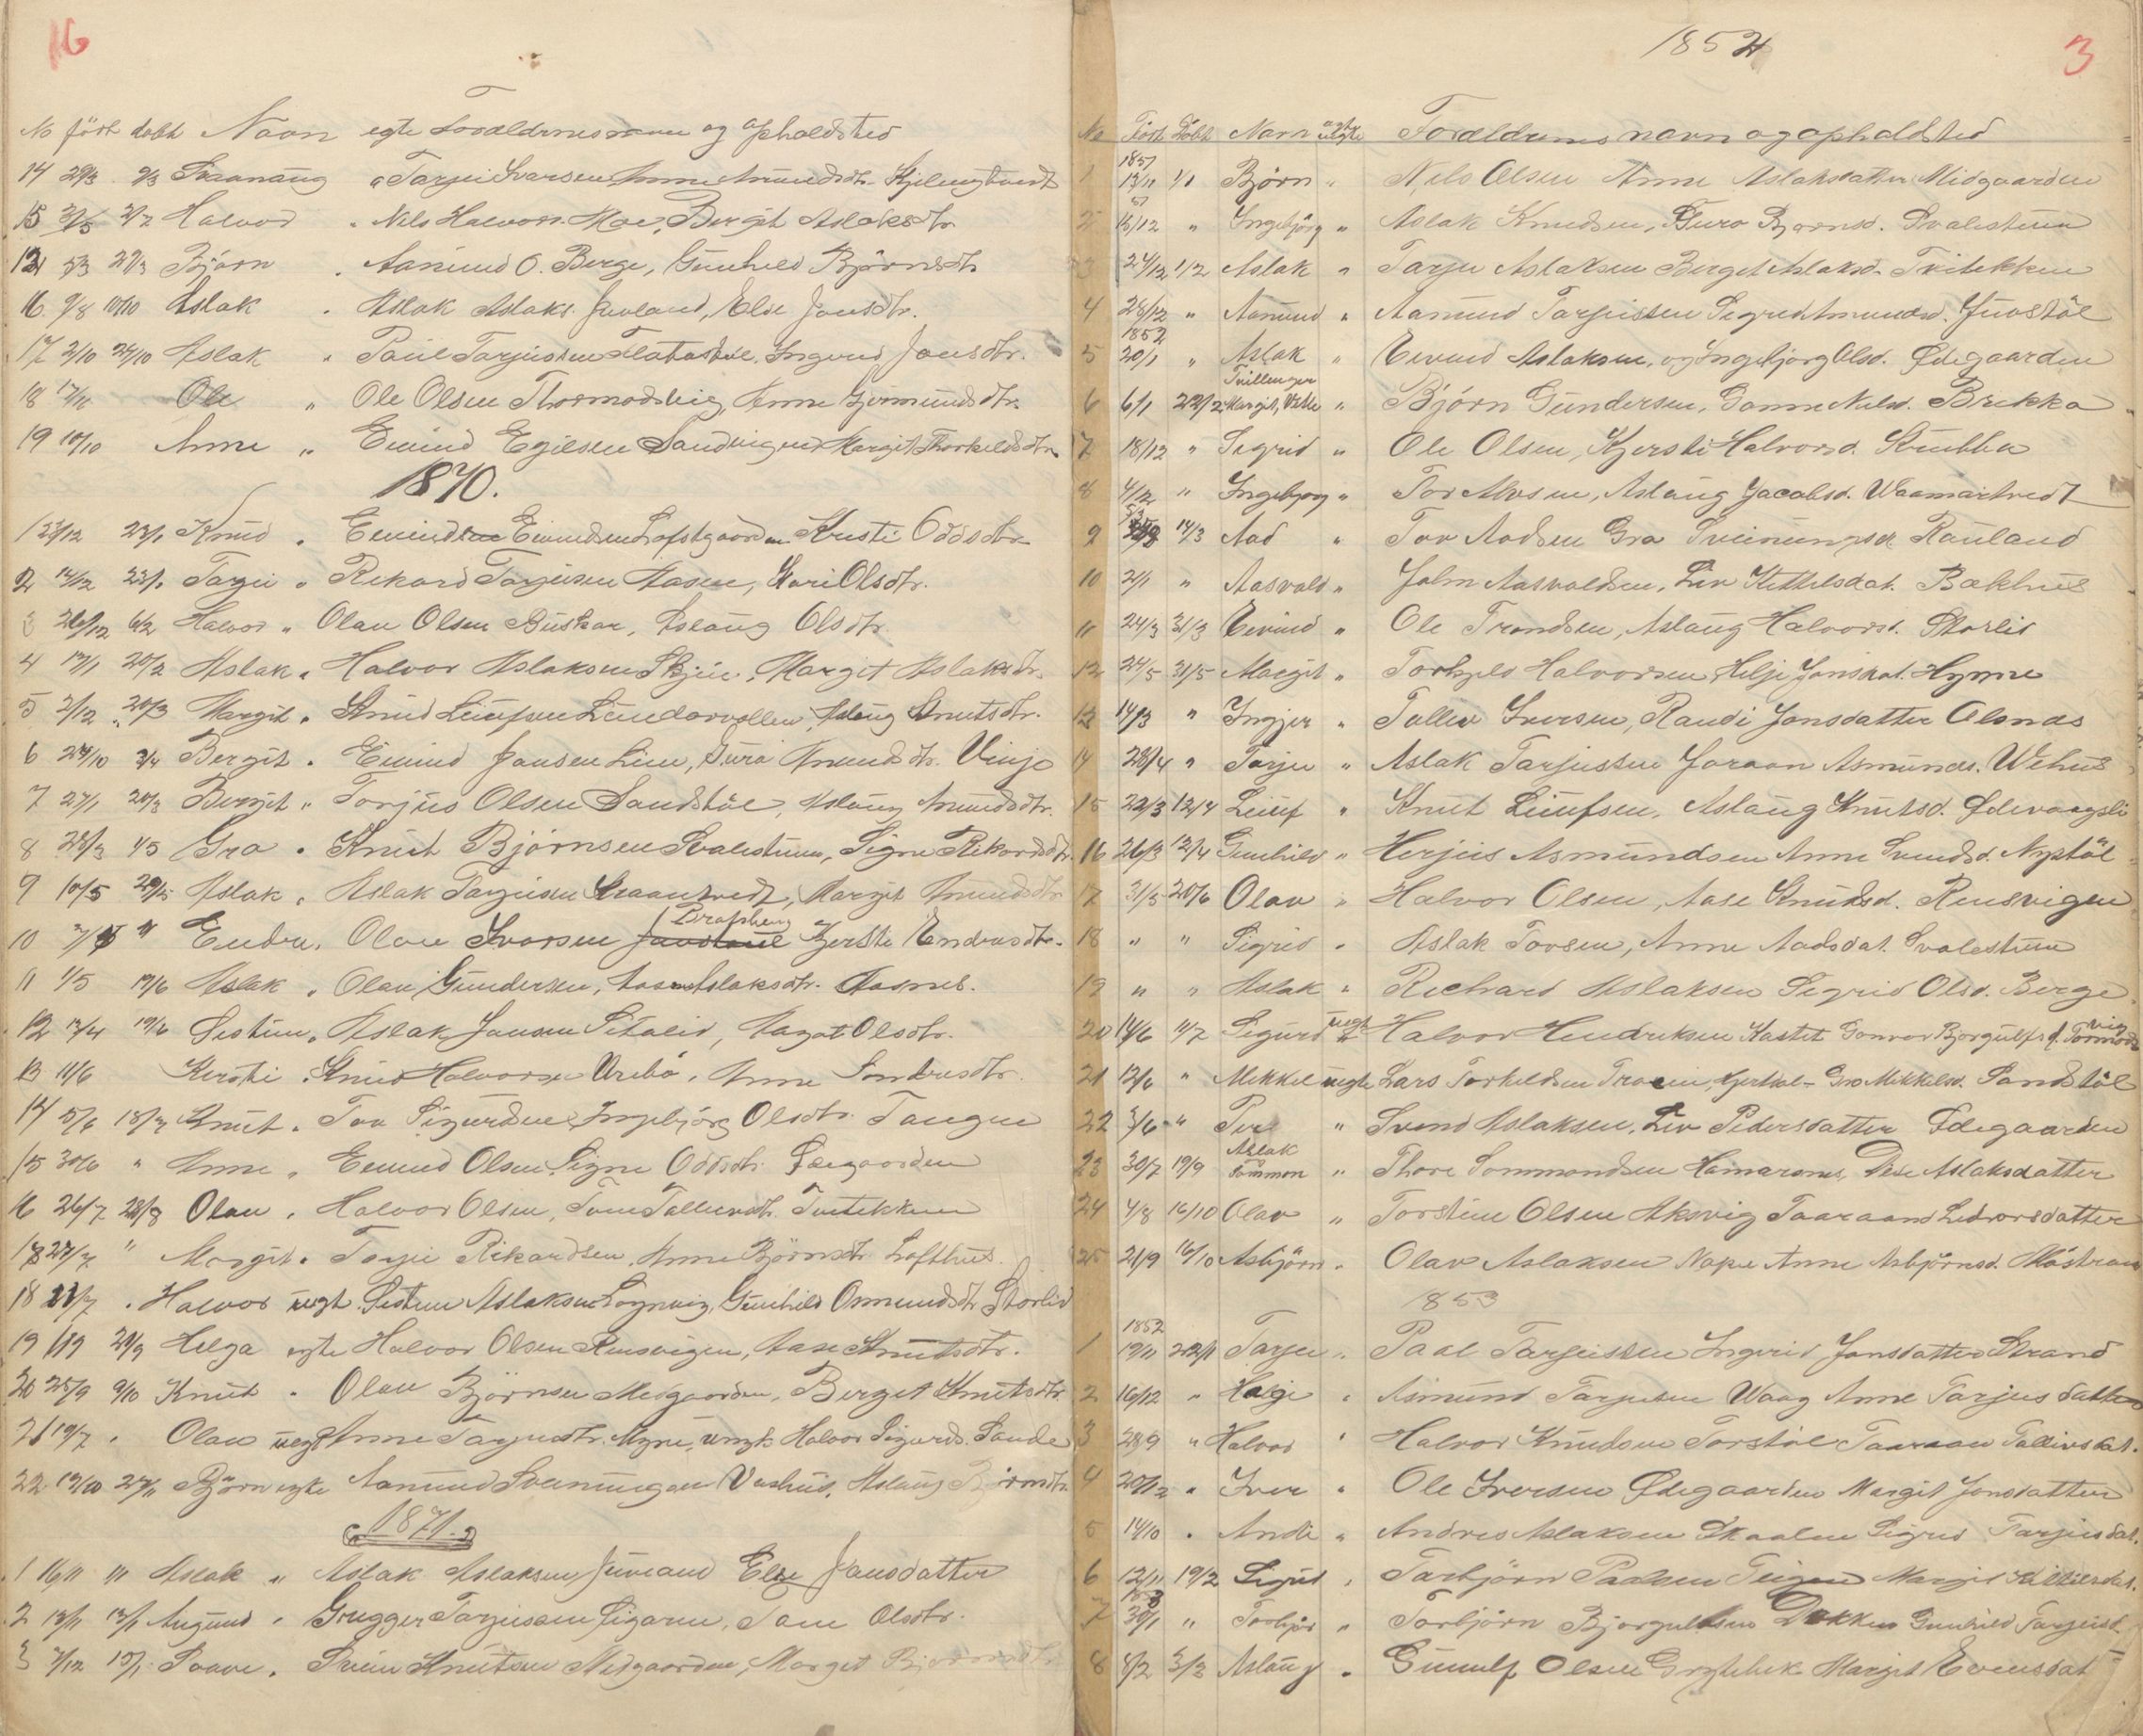 16
No födt döbt Navn egte Foræld­rnes navn og opholdsted
14 29/3 9/3 Svanaug " Tarjei Ivarsen Anne Amundsdtr. Kjilengtvedt
15 Halvor " Nils Halvors. Moe, Bergit Aslaksdtr
29/3 Björn " Aamund O. Berge, Gunhild Björnsdtr
16 9/8 10/10 Aslak " Aslak Aslaks. Juvland, Else Jonsdtr.
17 2/10 24/10 Aslak " Paul Tarjeisen Flatastöl, Ingerid Jonsdtr.
18 Ole " Ole Olsen Thormodsvig, Anne Germundsdtr.
19 10/10 Anne " Eivind Egilsen Sandvigen Margit Thorkildsdtr
1870.
1 23/12 23/1 Knud " Eivind Eivindsen Loftsgaarden Kristi Oddsdtr
2 14/12 23/1 Tarjei " Rikard Tarjeisen Aasen, Kari Olsdtr.
3 26/12 6/2 Halvor " Olav Olsen Buskar, Aslaug Olsdtr.
4 17/1 20/2 Aslak " Halvor Aslaksen Skjei, Margit Aslaksdtr.
5 2/12 20/3 Margit " Knud Leiufsen Lundarvollen, Aslaug Knutsdtr.
6 24/10 3/4 Bergit " Eivind Jonsen Lien, Gura Amundsdtr. Vinje
7 27/1 20/3 Bergit " Torjus Olsen Sandstöl, Aslaug Amundsdtr.
8 28/3 4/5 Gro " Knut Björnsen Svalestuen, Signe Rikardsdtr.
9 10/5 29/5 Aslak " Aslak Tarjeisen Kraantvedt, Margit Amundsdtr
Brapheng
10 " Endre " Olav Ivarsen Juvstöul Kjersti Endresdtr.
11 1/5 19/6 Aslak " Olav Gundersen, Aase Aslaksdtr. Aasnes.
12 17/4 19/6 Sistun " Aslak Jonsen Sitalid, Aagot Olsdtr.
13 11/6 Kersti " Knud Halvorsen Urebö, Anne Sondresdtr.
14 5/6 18/7 Knut " Tov Sigurdsen, Ingebjörg Olsdtr. Tangen
15 30/6 " Anne " Eivind Olsen, Signe Oddsdtr. Ödegaarden
16 26/7 28/8 Olav " Halvor Olsen, Tone Tallevsdtr. Tveitekken
17 27/7 " Margit " Tarjei Rikardsen, Anne Björnsdtr. Lofthus.
18 21/7 " Halvor uegt. Sistun Aslaksen Lognvig, Gunhild Osmundsdtr. Storlid
19 1/9 21/9 Helga egte Halvor Olsen Rensvigen, Aase Knutsdtr.
20 25/9 9/10 Knut " Olav Björnsen Midgaarden, Berget Knutsdtr.
21 19/7 " Olav uegt Anne Tarjeisdtr. Myre, ungk Halvor Sigurds. Sande
22 12/10 27/11 Björn egte Aamund Sveinungsen Vashus, Aslaug Björnsdtr.
1871.
1 16/11 1/1 Aslak " Aslak Aslaksen Juvland Else Jonsdatter
2 13/11 13/1 Augund " Gregger Tarjeissen Sigaren, Tone Olsdtr.
3 7/12 15/1 Svave " Svein Knutsen Midgaarden, Marget
1852
3
No Födt Döbt Navn egte uegte Forældrenes navn og opholdsted
1851
1 13/11 1/1 Björn " Nils Olsen Anne Aslaksdatter Midgaarden
51
2 15/12 " Ingebjörg " Aslak Knudsen, Guro Bjornsd. Svalestuen
3 24/12 1/2 Aslak " Tarjei Aslaksen Berget Aslaksd. Tvitekken
4 28/12 " Aamund " Aamund Tarjeissen Sigrid Amundsd. Juvstöl
1852
5 20/1 " Aslak " Eivind Aslaksen, og Ingebjorg Olsd. Ödegaarden
Tvillinger
6 6/1 22/2 Margit, Vetle " Björn Gundersen, Gonne Nilsd. Brekka
7 18/12 " Sigrid " Ole Olsen, Kjersti Halvorsd. Stubba
8 4/12 " Ingebjorg " Tor Alvsen, Aslaug Jacobsd. Vaamartvedt
9 14/3 Aad " Tov Aadsen Gro Sveinungsd. Rauland
10 2/1 " Aasvald " John Aasvaldsen, Liv Kittelsdat. Bakhus
11 24/3 31/3 Eivind " Ole Trondsen, Aslaug Halvorsd. Storlid
12 24/5 31/5 Margit " Torkjeld Halvorsen Helje Jonsdat. Hynne
13 14/3 " Ingjer " Tallev Iversen, Randi Jonsdatter Olsnas
14 28/4 " Tarjei " Aslak Tarjeissen Joraan Asmunds. Wehus
15 22/3 12/4 Leiuf " Knut Leiufsen, Aslaug Knutsd. Ödevaagsli
16 26/3 12/4 Gunhild " Herjus Asmundsen Anne Svendsd. Nystöl
17 31/5 20/6 Olav " Halvor Olsen, Aase Knutsd. Rensvigen
18 " " Sigrid " Aslak Tovsen, Anne Aadsdat. Svalestuen
19 " " Aslak " Richard Aslaksen Sigrid Olsd. Berge
20 14/6 11/7 Sigurd uegt Halvor Hendriksen Kastet Gonvor Bjorgulfsd. Tormodsvig
21 12/6 " Mikkel uegte Lars Torkildsen Traaen, Hjertdal - Gro Mikkelsd. Sandstöl
22 3/6 " Per " Svend Aslaksen, Liv Pedersdatter Ödegaarden
Aslak
23 30/7 19/9 Sommon " Thore Sommondsen Hamarsnes, Dese Aslaksdatter
24 4/8 16/10 Olav " Torstein Olsen Aksvig Taaraand Ledvorsdatter
25 21/9 16/10 Asbjörn " Olav Aslaksen Napu Anne Asbjörnsd. Mösstrand
1853
1852
1 19/11 22/1 Tarjei " Paal Tarjeissen Ingerid Jonsdatter Strand
2 16/12 " Helge " Asmund Tarjeisen Waag Anne Tarjeisdatter
3 28/9 " Halvor " Halvor Knudsen Torstöl Taaraan Tallivsdat.
4 20/12 " Iver " Ole Iversen Ödegaarden Margit Jonsdatter
5 14/10 " Andr. " Andres Aslaksen Skaalen Sigrid Tarjeisdat.
6 12/11 19/2 Sigrid " Torbjörn Paalsen Teigen Margit Kittilsdat.
1853
7 30/1 " Torbjör " Torbjörn Bjorgulfsen Dokken Gunhild Tarjeisd.
8 4/2 3/3 Aslaug " Gunulf Olsen Grytebek Margit Evensdat